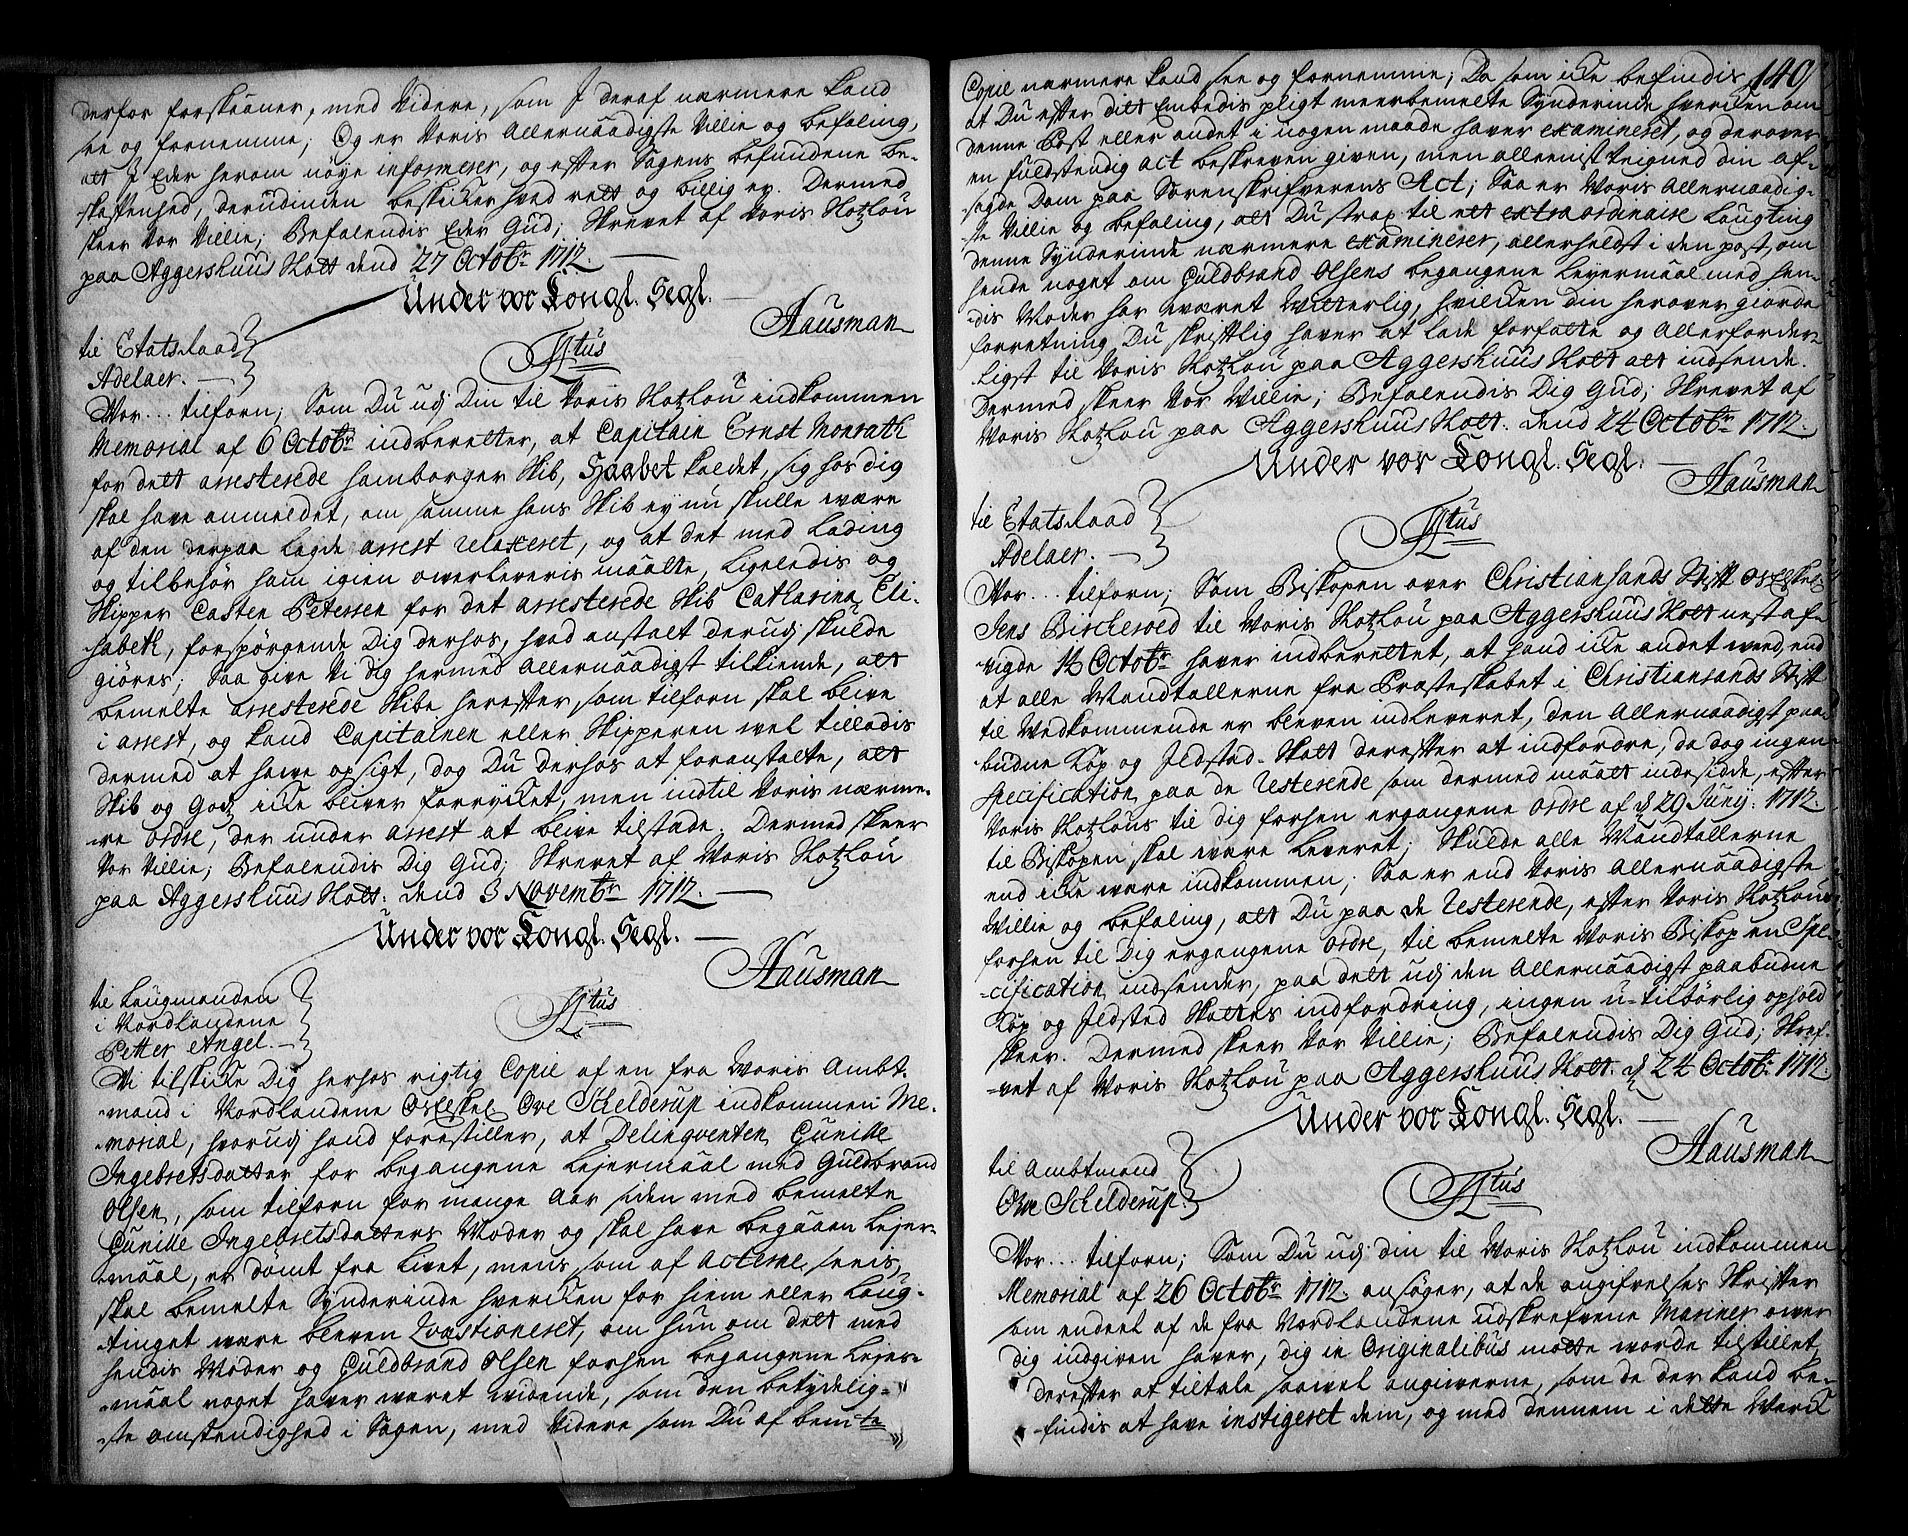 derfor forskaaner, med Videre, som I deraf nærmere kand
see og fornemme; Og er Voris Allernaadigste Villie og befaling,
alt I Eder herom nøye informerer, og efter Sagens befundene be-
-skaffenhed, derudinden beskicker hved rett og billig er. Dermed
skeer Vor Villie; Befalendis Eder Gud; Skrevet af Voris Slotzlou
paa Aggershuus Slott dend 27 Octobr 1712.
Under vor Kongl. Segl.
Hausman
til Etatsraad
Adelaer.
Ftus
Vor... tilforn; Som Du udj Din til Voris Slotzlou indkommen
Memorial af 6 Octobr indberetter, at Capitain Ernst Monrath
for dett arresterede hamborger Skib, Haabet kaldet, sig hos dig
skal have anmeldet, om samme hans Skib ey nu skulle være
af den derpaa lagde arrest relaxeret, og at det med Lading
og tilbehør ham igien overleveris maatte, Ligeledis og
Skipper Casten Petersen for det arresterede Skib Catharina Eli-
sabeth, forspørgende Dig derhos, hvad anstalt derudj skulde
giøres; Saa give Vi Dig hermed Allernaadigst tilkiende, att
bemelte arresterede Skibe herefter som tilforn skal blive
i arrest, og kand Capitainen eller Skipperen vel tilladis
dermed at have opsigt, dog Du derhos at foranstalte, alt
Skib og Godz icke bliver forrycket, men indtil Voris nærme-
re ordre, der under arrest at blive tilstæde. Dermed skeer
Vor Villie; Befalendis Dig Gud; Skrevet af Voris Slotzlou
paa Aggershuus Slott. dend 3 Novembr 1712.
Under vor Kongl. Segl.
Hausman
til Laugmanden
i Nordlandene
Petter Angel.
Ftus
Vi tilskicke Dig herhos rigtig Copie af en fra Voris Ambt-
mand i Nordlandene Os Elskel. Ove Schelderup indkommen Me-
morial, hvorudj hand forestiller, at Delinqventen Gunille
Ingebretsdatter for begangene Lejermaal med Guldbrand
Olsen, som tilforn for mange Aar siden med bemelte
Gunille Ingebretsdatters Moder og skal have begaaen Lejer-
-maal, er dømt fra Livet, mens som af Acterne seeis,
skal bemelte Synderinde hvercken for hiem eller Laug-
tinget være bleven Qvæstioneret, om hun om dett med
hendis Moder og Guldbrand Olsen forhen begangene Lejer-
-maal noget haver været vidende, som den betydelig-
-ste omstendighed i Sagen, med Videre som Du af bemte
149
Copie nærmere kand see og fornemme; Da som icke befindis
at Du efter ditt Embedis pligt meerbemelte Synderinde hvercken om
denne Post eller andet i nogen maade haver examineret, og derover
en fuldstendig Act beskreven given, men alleenist teigned din af-
-sagde Dom paa Sorenskrifverens Act; Saa er Voris Allernaadig-
-ste Villie og befaling, att Du strax til ett extraordinaire Laugting
denne Synderinde nærmere examinerer, allerheldst i den post, om
hende noget om Guldbrand Olsens begangene Leyermaal med hen-
-dis Moder har været Vitterlig, hvilcken din herover giorde
forretning Du skriftlig haver at lade forfatte og Allerforder-
-ligst til Voris Slotzlou paa Aggershuus Slott att indsende.
Dermed skeer Vor Villie; Befalendis Dig Gud; Skrevet af
Voris Slotzlou paa Aggershuus Slott. dend 24 Octobr 1712.
Under vor Kongl. Segl.
Hausman
til Etatsraad
Adelaer.
Ftus
Vor... tilforn; Som Biskopen over Christiansands Stift Os Elskel.
Jens Bircheroed til Voris Slotzlou paa Aggershuus Slott nest af-
-vigde 12 Octobr haver indberettet, at hand icke andet veed, end
at alle Mandtallerne fra Præsteskabet i Christiansands Stift
til Vedkommende er bleven indleveret, den Allernaadigst paa-
budne Kop og Ildsted-Skatt derefter at indfordre, da dog ingen
Specification paa de resterende som dermed maatt indesidde, efter
Voris Slotzlous til dig forhen ergangene ordre af d 29 Junij. 1712.
til Biskopen skal være leveret; Skulde alle Mandtallerne
end icke være indkommen; Saa er end Voris Allernaadigste
Villie og befaling, att Du paa de resterende, efter Voris Slotzlous
forhen til Dig ergangene ordre, til bemelte Voris Biskop en Spe-
-cification indsender, paa dett udj den Allernaadigst paabudne
Kop og Ildsted Skattes indfordring, ingen u-tilbørlig ophold
skeer. Dermed skeer Vor Villie; Befalendis Dig Gud; Skref-
-vet af Voris Slotzlou paa Aggershuus Slott. d 24 Octobr. 1712.
Under vor Kongl. Segl.
Hausman
til Ambtmand
Ove Schelderup.
Ftus
Vor... tilforn; Som Du udj din til Voris Slotzlou indkommen
Memorial af 26 Octobr 1712. ansøger, at de angifvelses Skrifter
som endeel af de fra Nordlandene udskrefvene Mariner over
dig indgiven haver, dig in Originalibus motte worde tilstillet,
derefter at tiltale saavel angiverne, som de der kand be-
-findis at have instigeret dem, og med dennem i dette Værck